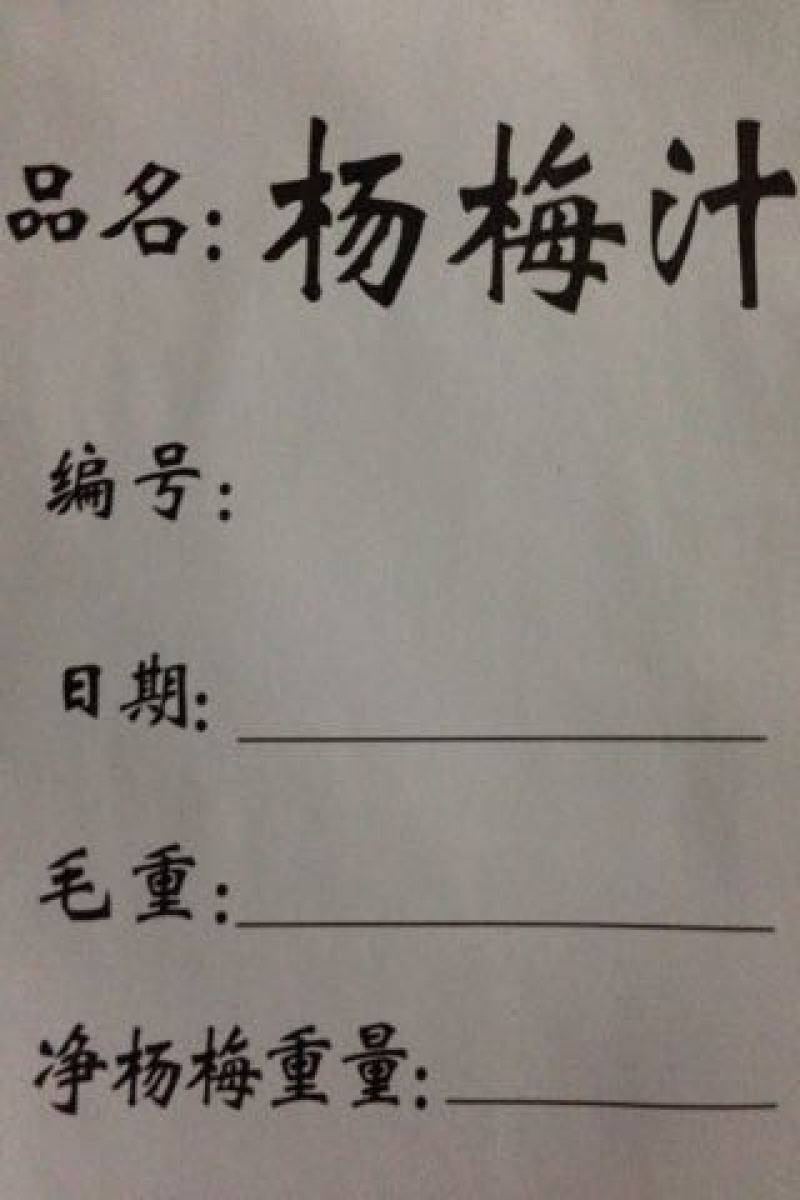 品名:杨梅汁
编号:
日期:
毛重:
净杨梅重量: